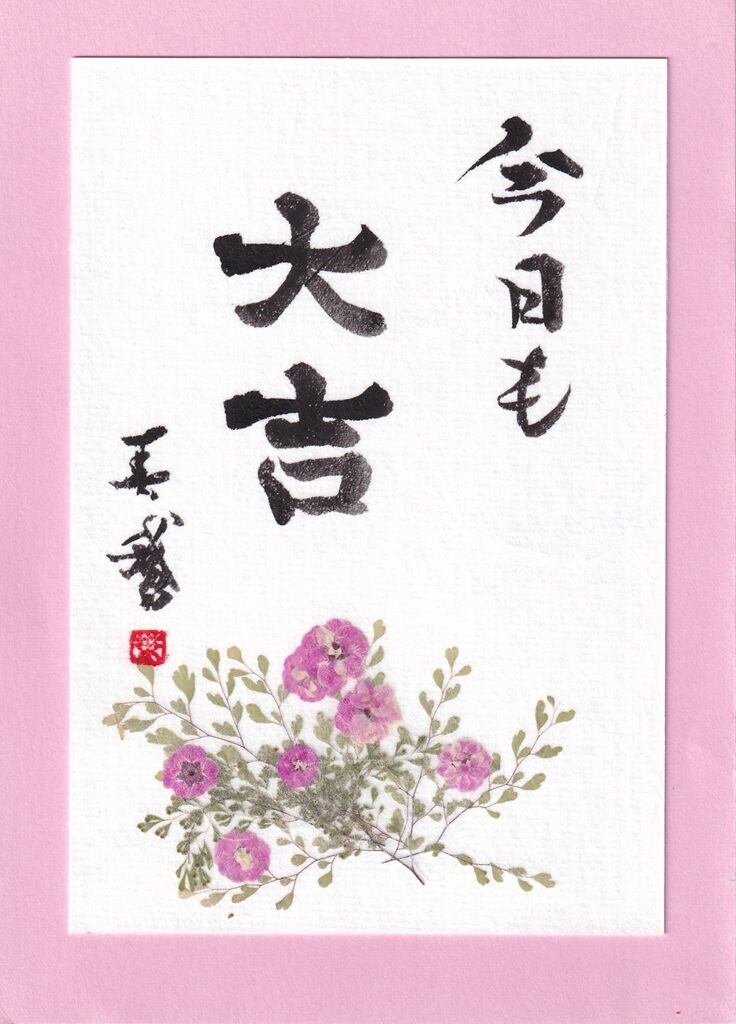 今日も
大吉